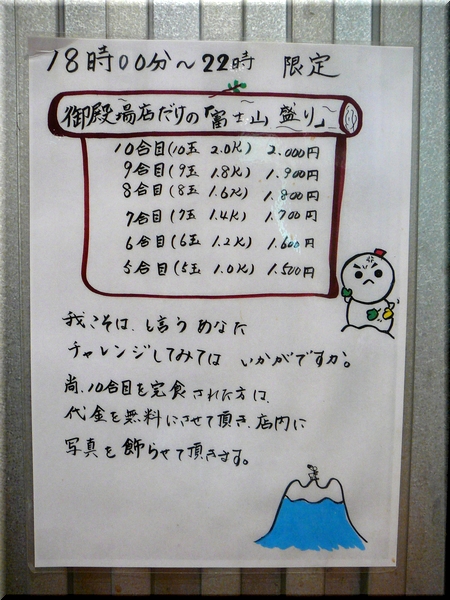 18時00分～22時 限定
御殿場店だけの「富士山盛り」
10合目(10玉 2.0K) 2.000円
9合目(9玉 1.8K) 1.900円
8合目(8玉 1.6K) 1.800円
7合目(7玉 1.4K) 1.700円
6合目(6玉 1.2K) 1.600円
5合目(5玉 1.0K) 1.500円
我こそは、と言うあなた
チャレンジしてみては いかがですか。
尚、10合目を完食された方は、
代金を無料にさせて頂き、店内に
写真を飾らせて頂きます。